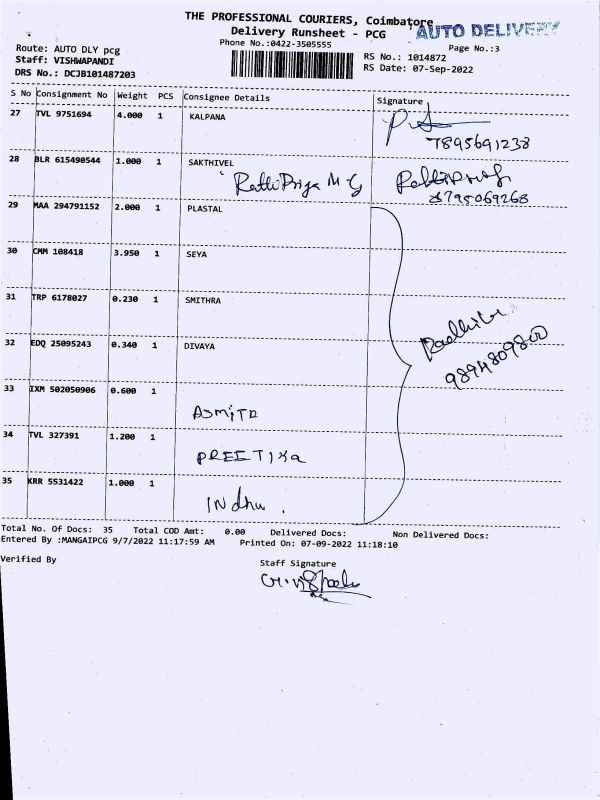 THE PROFESSIONAL COURIERS, Coimbatore
AUTO DELIVERY
Delivery Runsheet - PCG
Phone No.:0422-3505555
Page No.:3
Route: AUTO DLY pcg
Staff: VISHWAPANDI
DRS No.: DCJB101487203
RS No.: 1014872
RS Date: 07-Sep-2022
S No Consignment No Weight PCS Consignee Details Signature
27 TVL 9751694 4.000 1 KALPANA
7895691238
28 BLR 615490544 1.000 1 SAKTHIVEL
RathiPriya M G
8795069268
29 MAA 294791152 2.000 1 PLASTAL
30 CMM 108418 3.950 1 SEYA
31 TRP 6178027 0.230 1 SMITHRA
32 EDQ 25095243 0.340 1 DIVAYA
9894809800
33 IXM 502050906 0.600 1
ASMITA
34 TVL 327391 1.200 1
PREETIKa
35 KRR 5531422 1.000 1
INdhu.
Total No. Of Docs: 35 Total COD Amt: 0.00 Delivered Docs: Non Delivered Docs:
Entered By :MANGAIPCG 9/7/2022 11:17:59 AM Printed On: 07-09-2022 11:18:10
Verified By
Staff Signature